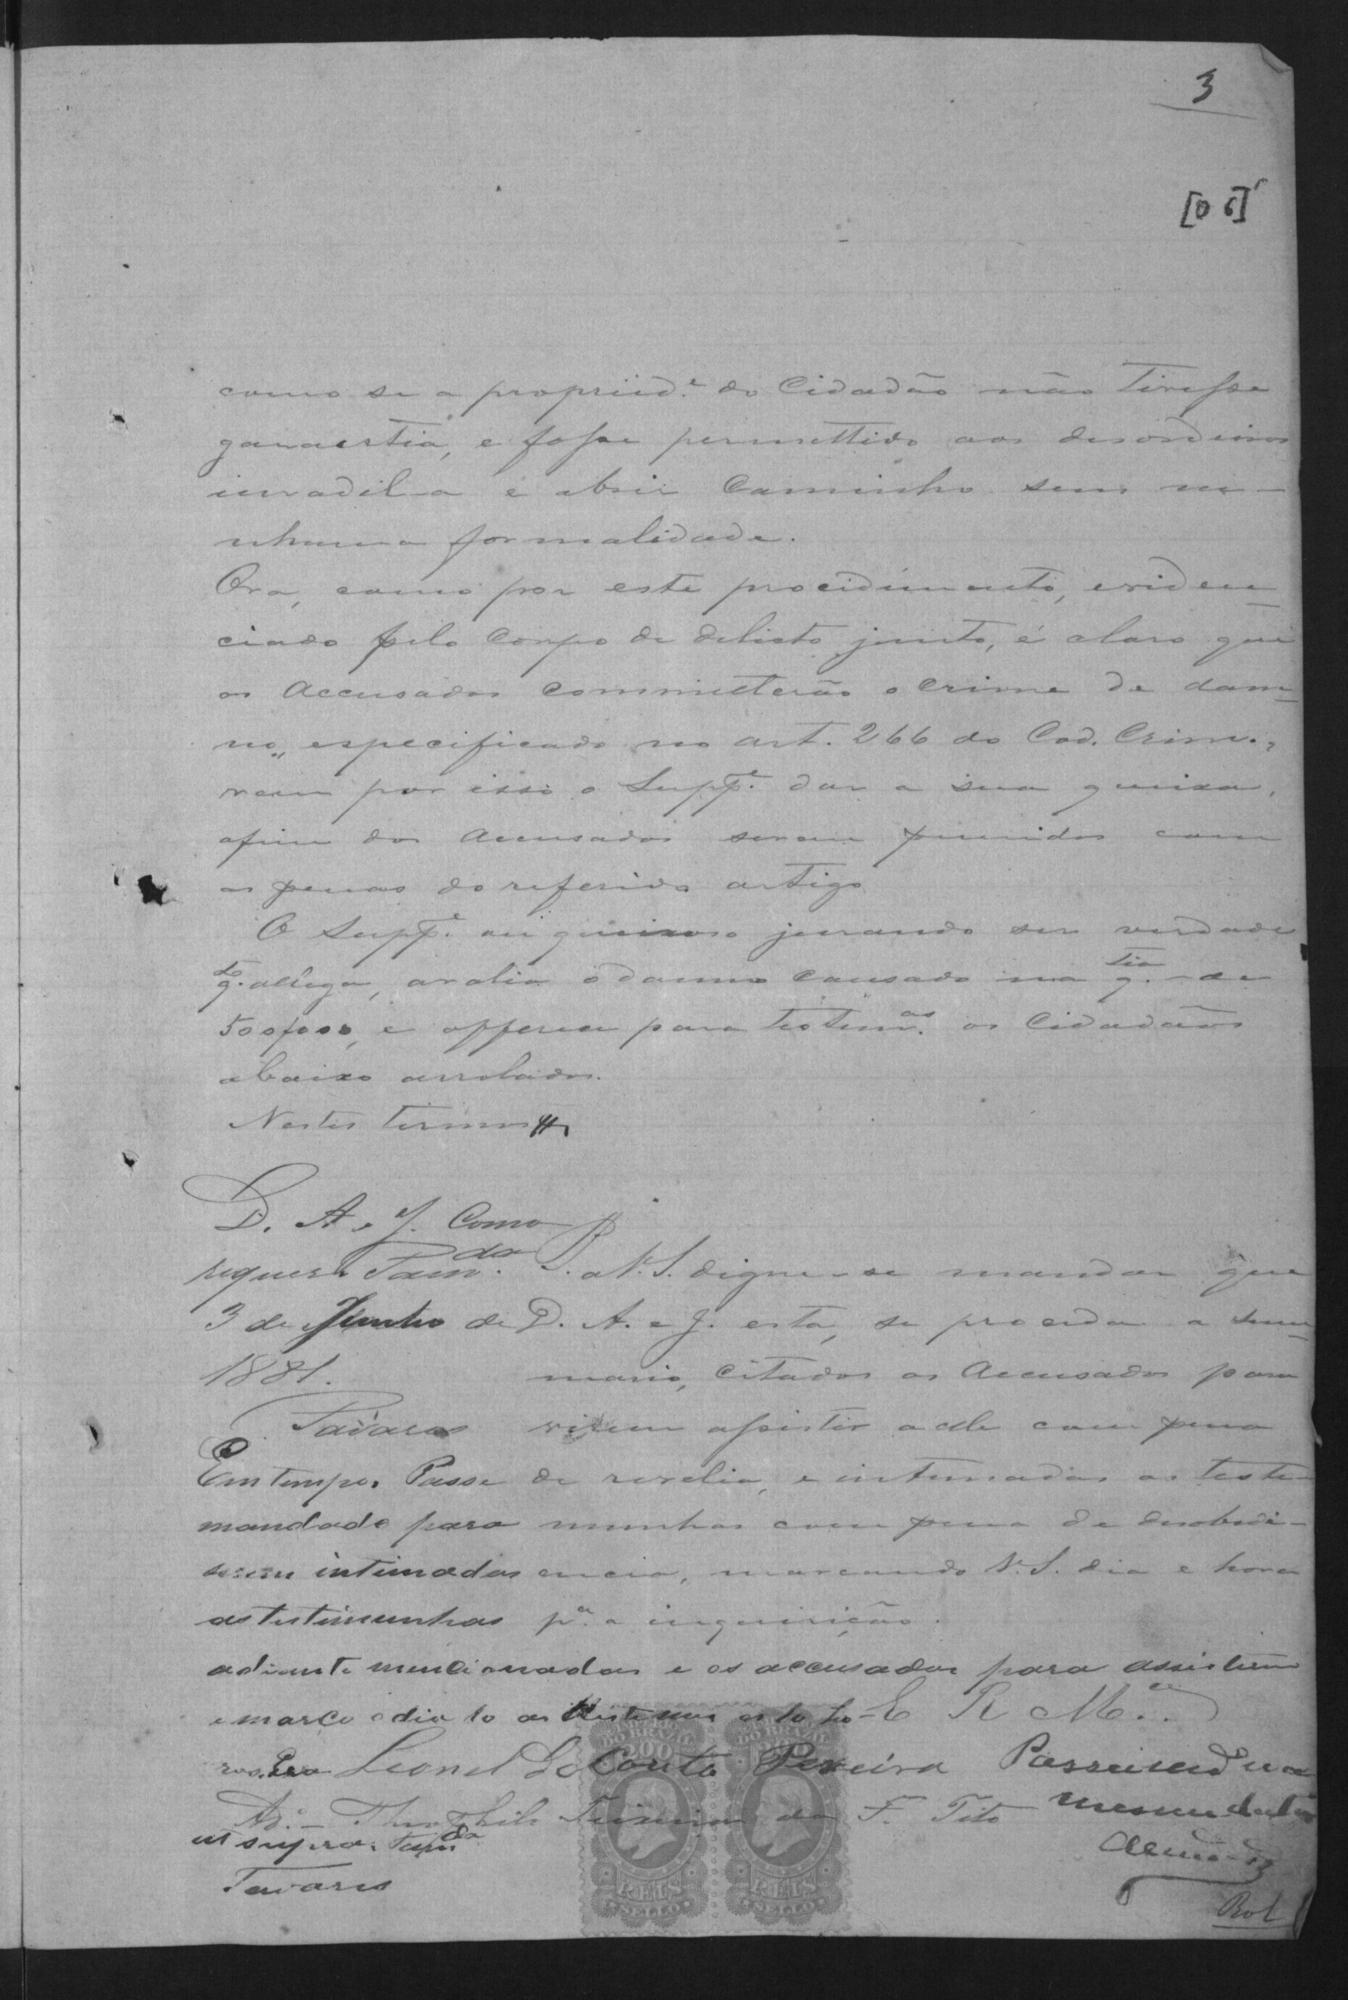 3
[06]
como se a propried.e do Cidadão não tivesse
garaertia, e fosse permettido aos desordeiros
invadil-a e abrir caminho sem ne-
nhuma formalidade.
Ora, como por este procidimento, eviden
ciado pelo Corpo de delicto junto, é claro que
os Accusados commetterão o crime de dam-
no, especificado no art. 266 do Cod. Crim.,
vem por isso o Supp.e dar a sua queixa,
afim dos accusados serem punidos com
as penas do referido artigo
O Supp.e ou queixoso jurando ser verdade
q.to allega, avalia o damno causado na q.tia de
500$000, e offerece para testem.as os Cidadãos
abaixo arrolados.
Nestes termos
D. A. e J. Como
requer. Tam.da
3 de Junho de
1881.
Tavares
P. a V. S. digne-se mandar que
D. A. e J. esta, se proceda a sum-
mario, citados os Accusados para
virem assistir a elle com pena
de revelia, e intimadas as teste-
munhas com pena de desobedi-
encia, marcando V. S. dia e hora
p.a a inquirição.
Em tempo. Passe
mandado para
serem intimadas
as testimunhas
adiante mencionadas e os accusados para assistirem
e marco o dia 10 as
E R M.ce
Leonel do Couto Pereira
Ad.º Theophilo Teixeira da F. Tito
ut supra. Tam.da
Tavares
Passei
mesma data
Almeida
Rol
DO BRAZIL
200
REIS
SELLO
DO BRAZIL
200
REIS
SELLO